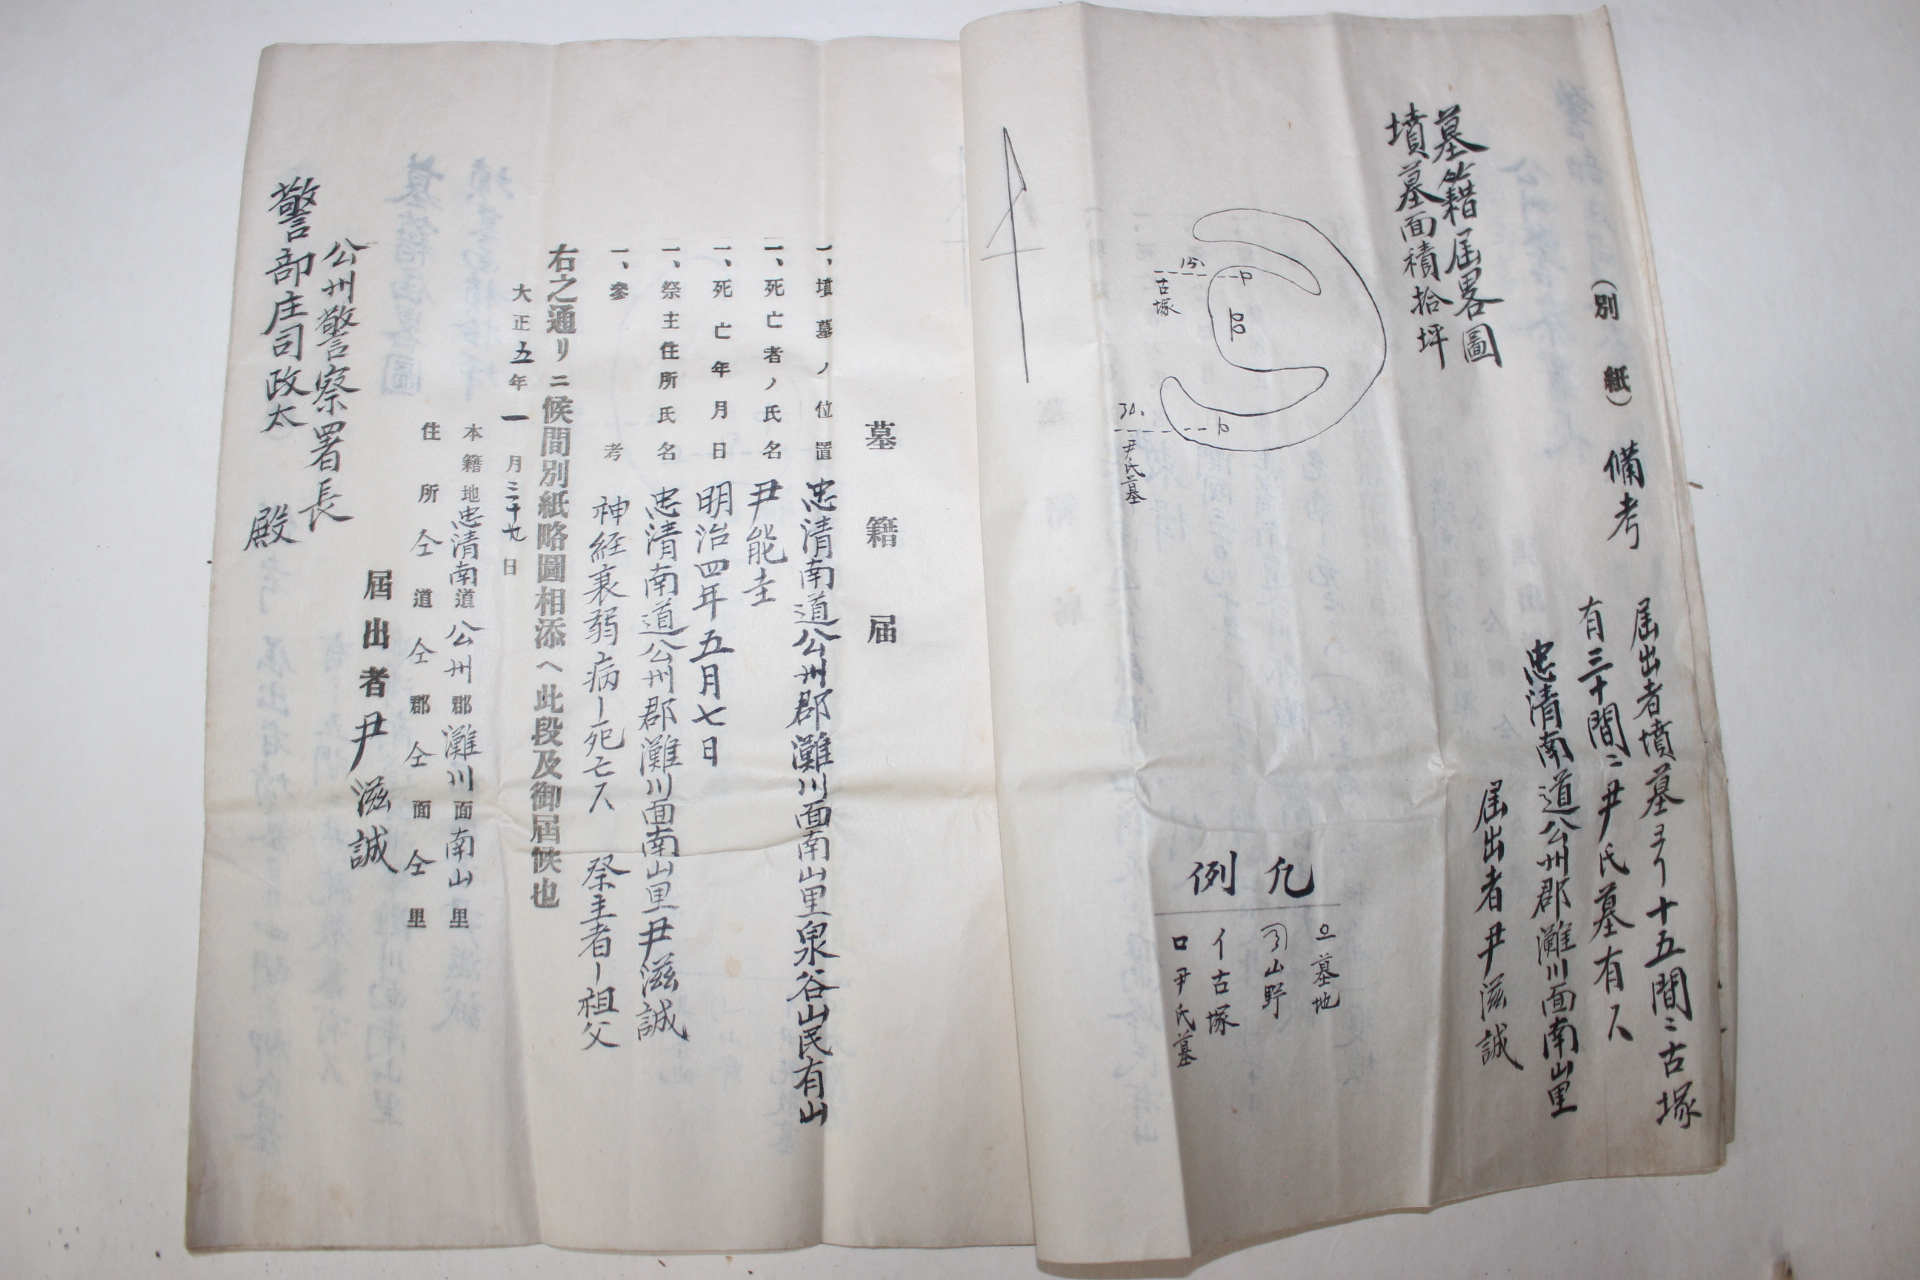 (別紙)
備考
届出者墳墓ヨリ十五間ニ古塚
有三十間ニ尹氏墓有ス
忠清南道公州郡灘川面南山里
届出者尹滋誠
墓籍届畧圖
墳墓面積拾坪
15.
古塚
30.
尹氏墓
凡例
墓地
山野
イ古塚
ロ尹氏墓
墓籍届
一、墳墓ノ位置 忠清南道公州郡灘川面南山里泉谷山民有山
一、死亡者ノ氏名 尹能圭
一、死亡年月日 明治四年五月七日
一、祭主住所氏名 忠清南道公州郡灘川面南山里尹滋誠
一、參考 神経衰弱病ー死亡ス 祭主者ー祖父
右之通リニ候間別紙略圖相添ヘ此段及御屆候也
大正五年一月二十九日
本籍地忠清南道公州郡灘川面南山里
住所仝道仝郡仝面仝里
屆出者尹滋誠
公州警察署長
警部庄司政太殿